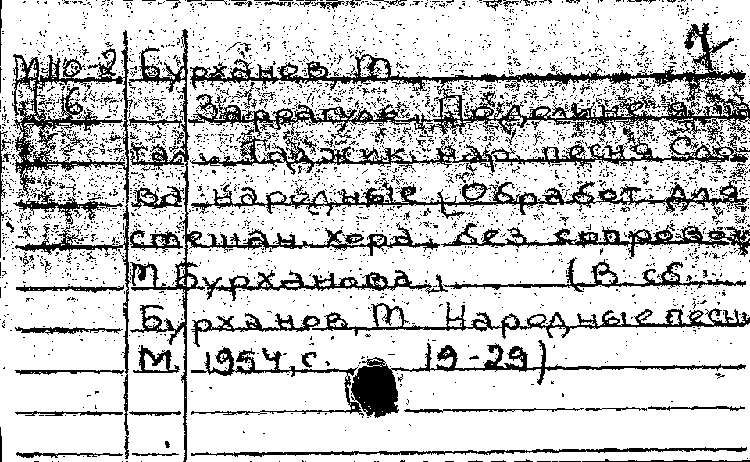 7
М 110-2 Бурханов, М.
И 6 Заррагуль.
тал... Таджик. нар. песня Сло-
ва народные, Обработ. для
смешан. хора, без сопровож
М. Бурханова, (В сб.:
Бурханов, М. Народные песни
М. 1954, с. 19-29)